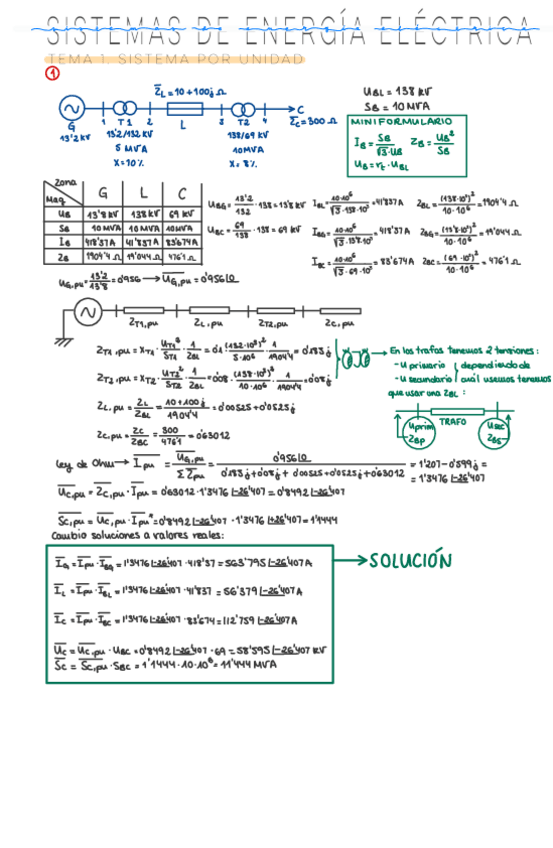 SISTEMAS DE ENERGÍA ELÉCTRICA
TEMA 1. SISTEMA POR UNIDAD
①
Z̅L = 10+100j Ω
UBL = 138 KV
SB = 10 MVA
G
13'2 KV
1 T1 2
13'2/132 KV
5 MVA
X=10%
L
3 T2 4
138/69 KV
10MVA
X=8%
C
Z̅c=300 Ω
MINIFORMULARIO
IB = SB/√3·UB ZB = UB²/SB
UB = rt · UBL
Zona
Mag. G L C
UB 13'8 KV 138 KV 69 KV
SB 10 MVA 10 MVA 10 MVA
IB 418'37 A 41'837 A 83'674 A
ZB 1904'4 Ω 19'044 Ω 476'1 Ω
UBG = 13'2/132 · 138 = 13'8 KV IBL = 10·10⁶/√3·138·10³ = 41'837 A ZBL = (138·10³)²/10·10⁶ = 1904'4 Ω
UBC = 69/138 · 138 = 69 KV IBG = 10·10⁶/√3·13'8·10³ = 418'37 A ZBG = (13'8·10³)²/10·10⁶ = 19'044 Ω
IBC = 10·10⁶/√3·69·10³ = 83'674 A ZBC = (69·10³)²/10·10⁶ = 476'1 Ω
UG,pu = 13'2/13'8 = 0'956 → U̅G,pu = 0'956|0
ZT1,pu ZL,pu ZT2,pu Zc,pu
ZT1,pu = XT1 · UT1²/ST1 · 1/ZBL = 0'1 · (132·10³)²/5·10⁶ · 1/1904'4 = 0'183j
ZT2,pu = XT2 · UT2²/ST2 · 1/ZBL = 0'08 · (138·10³)²/10·10⁶ · 1/1904'4 = 0'08j
ZL,pu = ZL/ZBL = 10+100j/1904'4 = 0'00525+0'0525j
Zc,pu = Zc/ZBC = 300/476'1 = 0'63012
En los trafos tenemos 2 tensiones:
-U primario
-U secundario
dependiendo de
cuál usemos tenemos
que usar una ZBL :
Uprim
ZBp
TRAFO
Usec
ZBs
Ley de Ohm → I̅pu = U̅G,pu/Σ Z̅pu = 0'956|0/0'183j+0'08j+0'00525+0'0525j+0'63012 = 1'207-0'599j =
= 1'3476 |-26'407
U̅c,pu = Z̅c,pu · I̅pu = 0'63012·1'3476 |-26'407 = 0'8492 |-26'407
S̅c,pu = U̅c,pu · I̅pu* = 0'8492 |-26'407 · 1'3476 |+26'407 = 1'1444
Cambio soluciones a valores reales:
I̅G = I̅pu · I̅BG = 1'3476 |-26'407 · 418'37 = 563'795 |-26'407 A
I̅L = I̅pu · I̅BL = 1'3476 |-26'407 · 41'837 = 56'379 |-26'407 A
I̅c = I̅pu · I̅BC = 1'3476 |-26'407 · 83'674 = 112'759 |-26'407 A
U̅c = U̅c,pu · UBC = 0'8492 |-26'407 · 69 = 58'595 |-26'407 KV
S̅c = S̅c,pu · SBC = 1'1444 · 10·10⁶ = 11'444 MVA
→ SOLUCIÓN